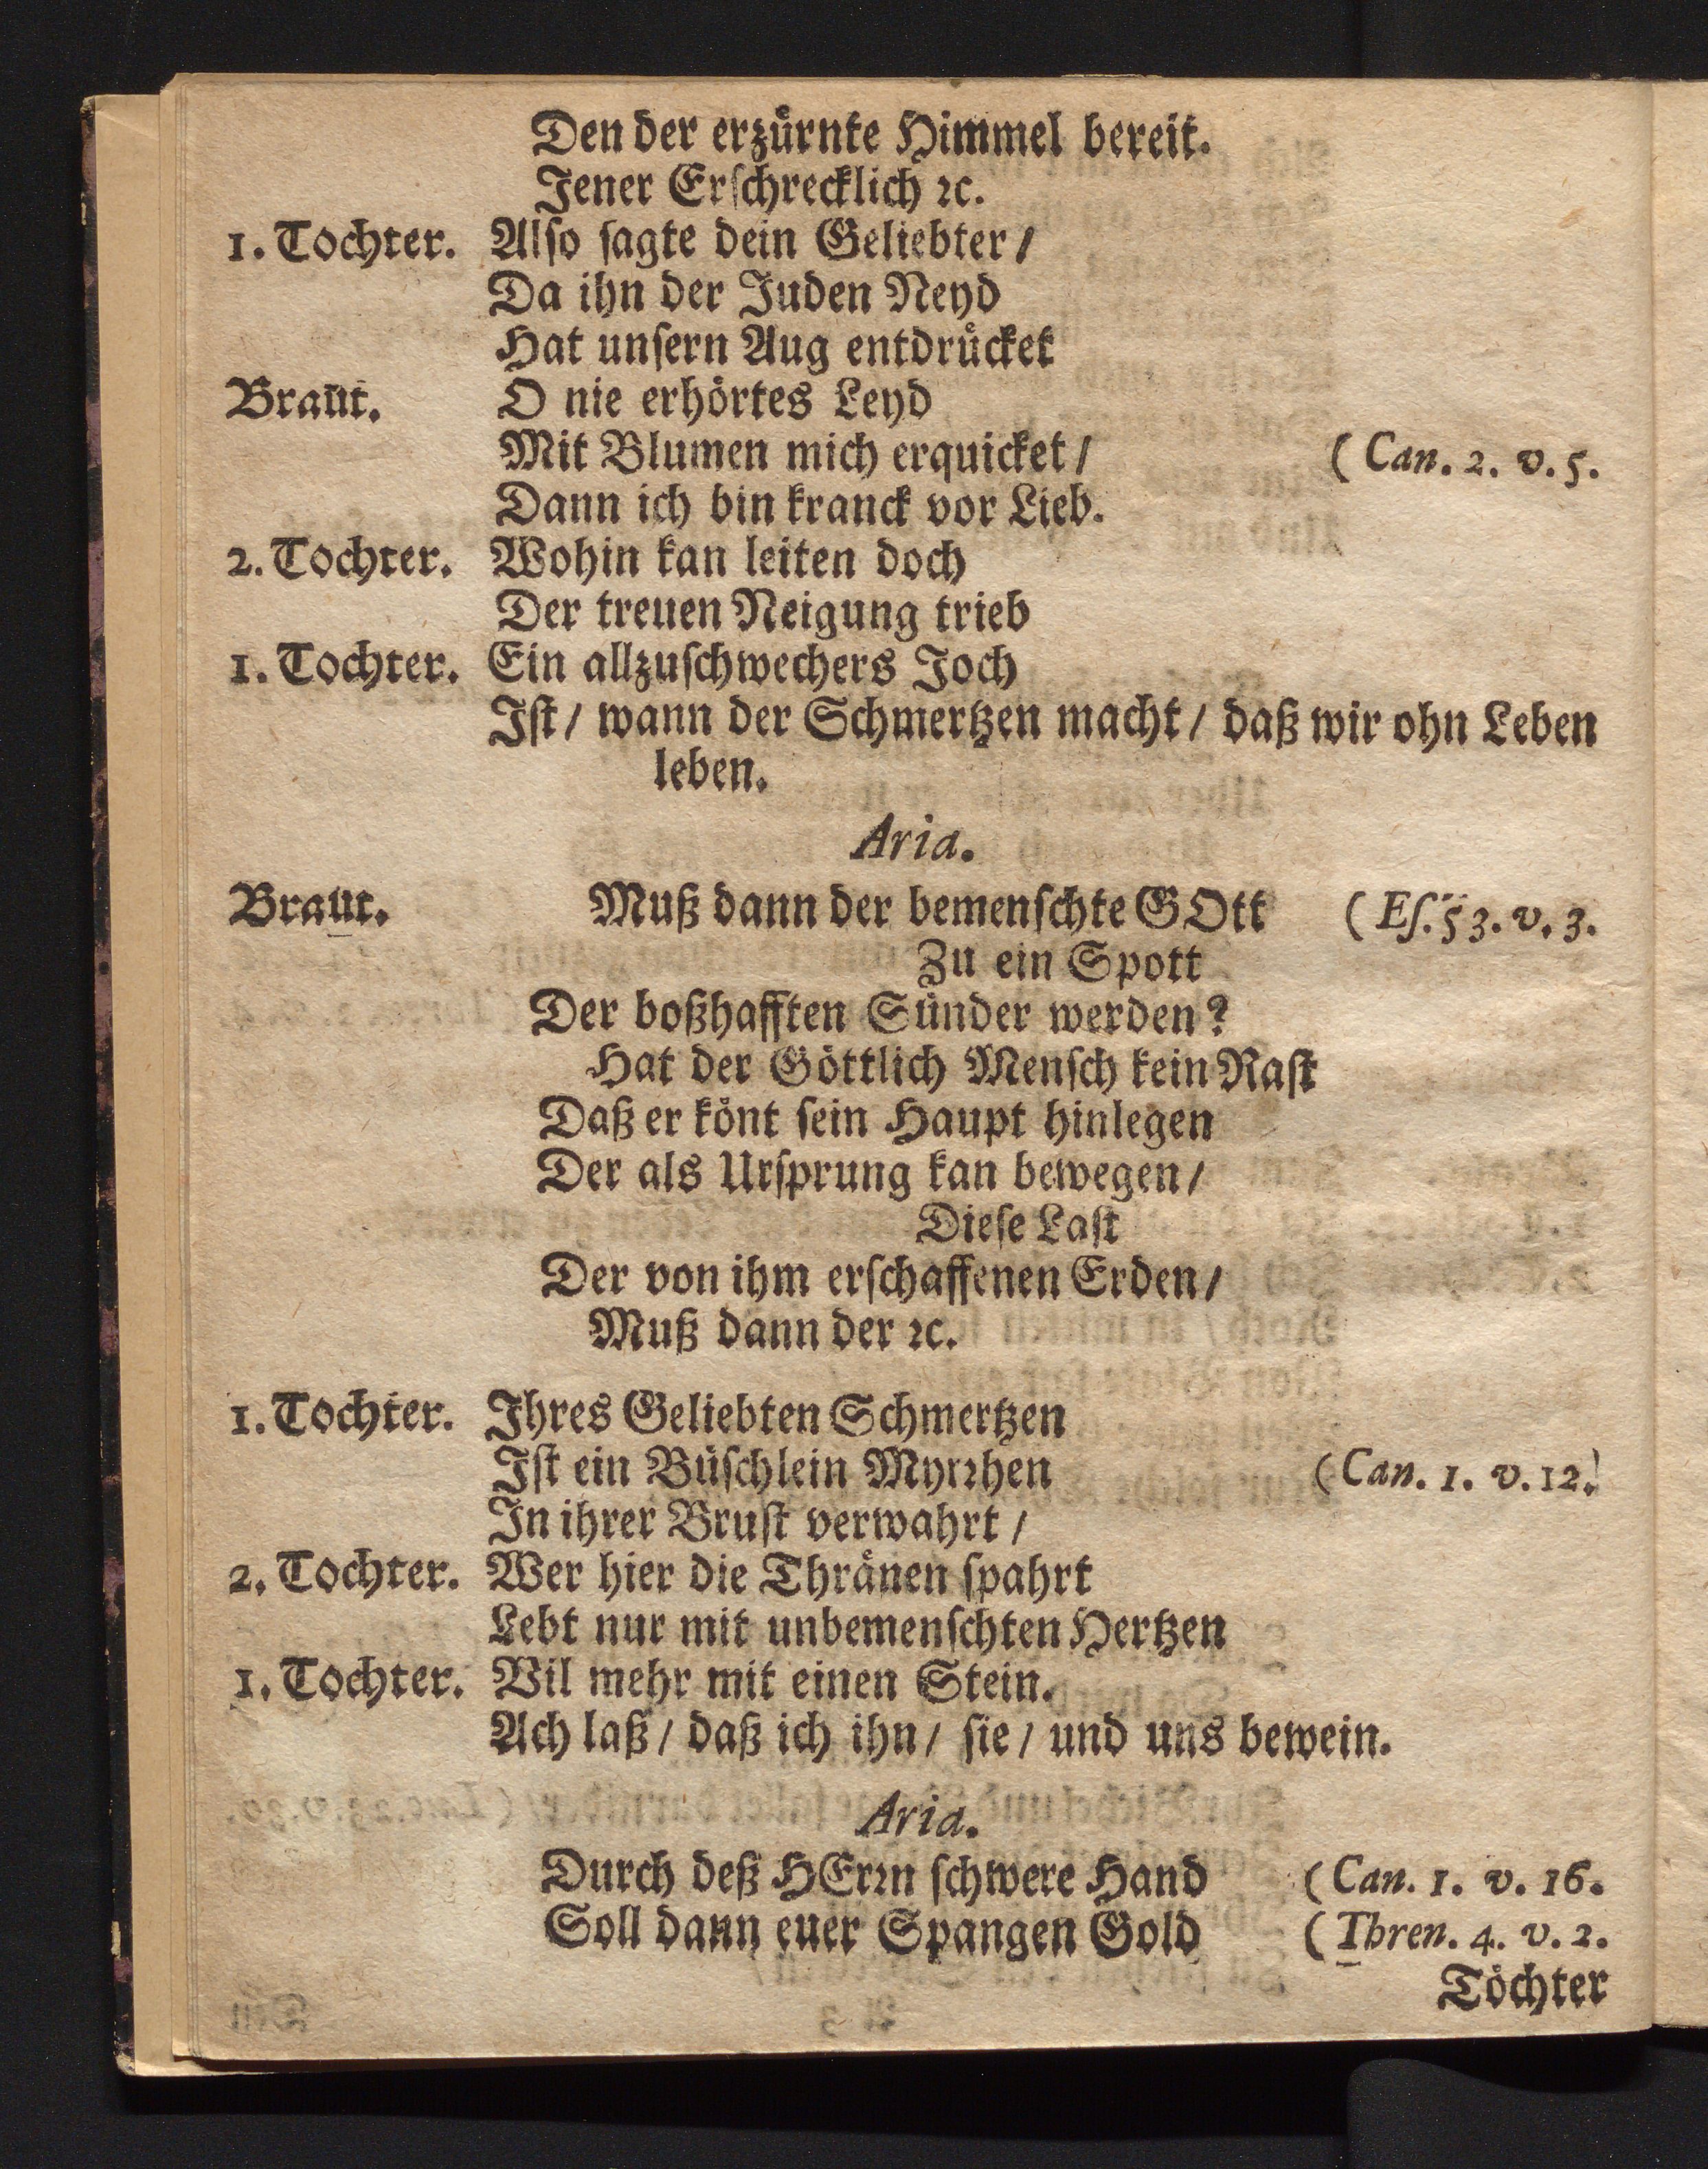 Den der erzürnte Himmel bereit.
Jener Erschrecklich ꝛc.
1. Tochter. Also sagte dein Geliebter /
Da ihn der Juden Neyd
Hat unsern Aug entdrücket
Braut. O nie erhörtes Leyd
Mit Blumen mich erquicket / (Can. 2. v. 5.
Dann ich bin kranck vor Lieb.
2. Tochter. Wohin kan leiten doch
Der treuen Neigung trieb
1. Tochter. Ein allzuschwechers Joch
Ist / wann der Schmertzen macht / daß wir ohn Leben
leben.
Aria.
Braut. Muß dann der bemenschte GOtt (Es. 53. v. 3.
Zu ein Spott
Der boßhafften Sünder werden?
Hat der Göttlich Mensch kein Rast
Daß er könt sein Haupt hinlegen
Der als Ursprung kan bewegen /
Diese Last
Der von ihm erschaffenen Erden /
Muß dann der ꝛc.
1. Tochter. Ihres Geliebten Schmertzen
Ist ein Büschlein Myrꝛhen (Can. 1. v. 12.
In ihrer Brust verwahrt /
2. Tochter. Wer hier die Thränen spahrt
Lebt nur mit unbemenschten Hertzen
1. Tochter. Vil mehr mit einen Stein.
Ach laß / daß ich ihn / sie / und uns bewein.
Aria.
Durch deß HErꝛn schwere Hand (Can. 1. v. 16.
Soll dann euer Spangen Gold (Thren. 4. v. 2.
Töchter